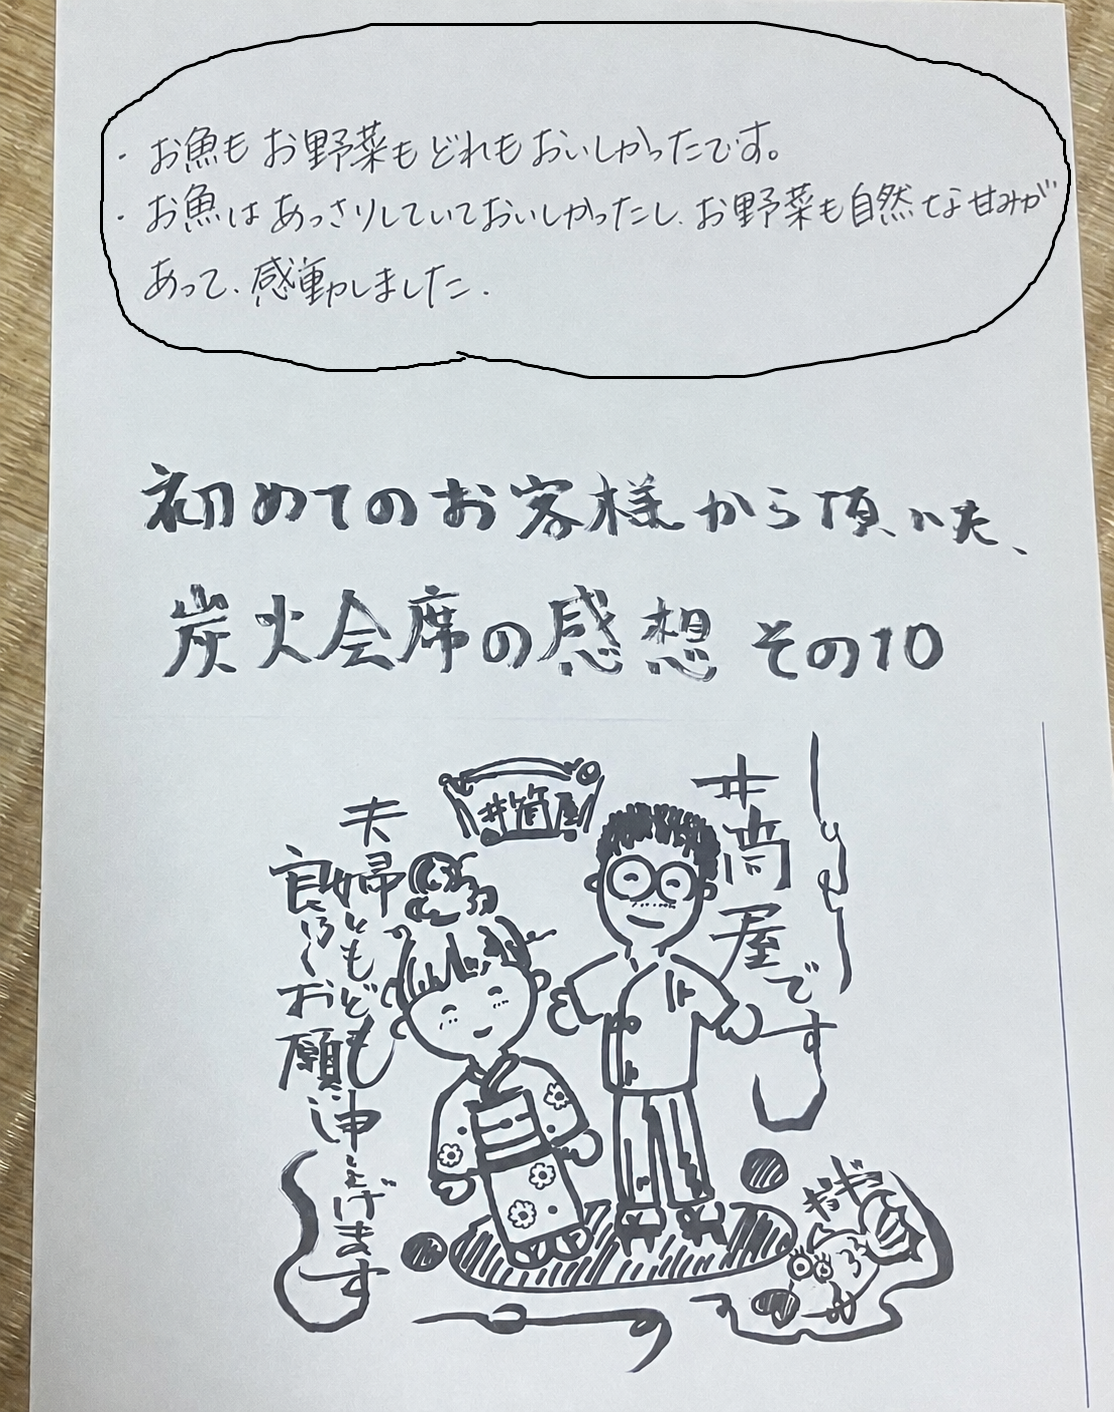 ・お魚もお野菜もどれもおいしかったです。
・お魚はあっさりしていておいしかったし、お野菜も自然な甘みが
あって、感動しました.
初めてのお客様から頂いた、
炭火会席の感想 その10
井筒屋
井筒屋です
夫婦ともども
良ろしくお願い申し上げます
ギョギョ